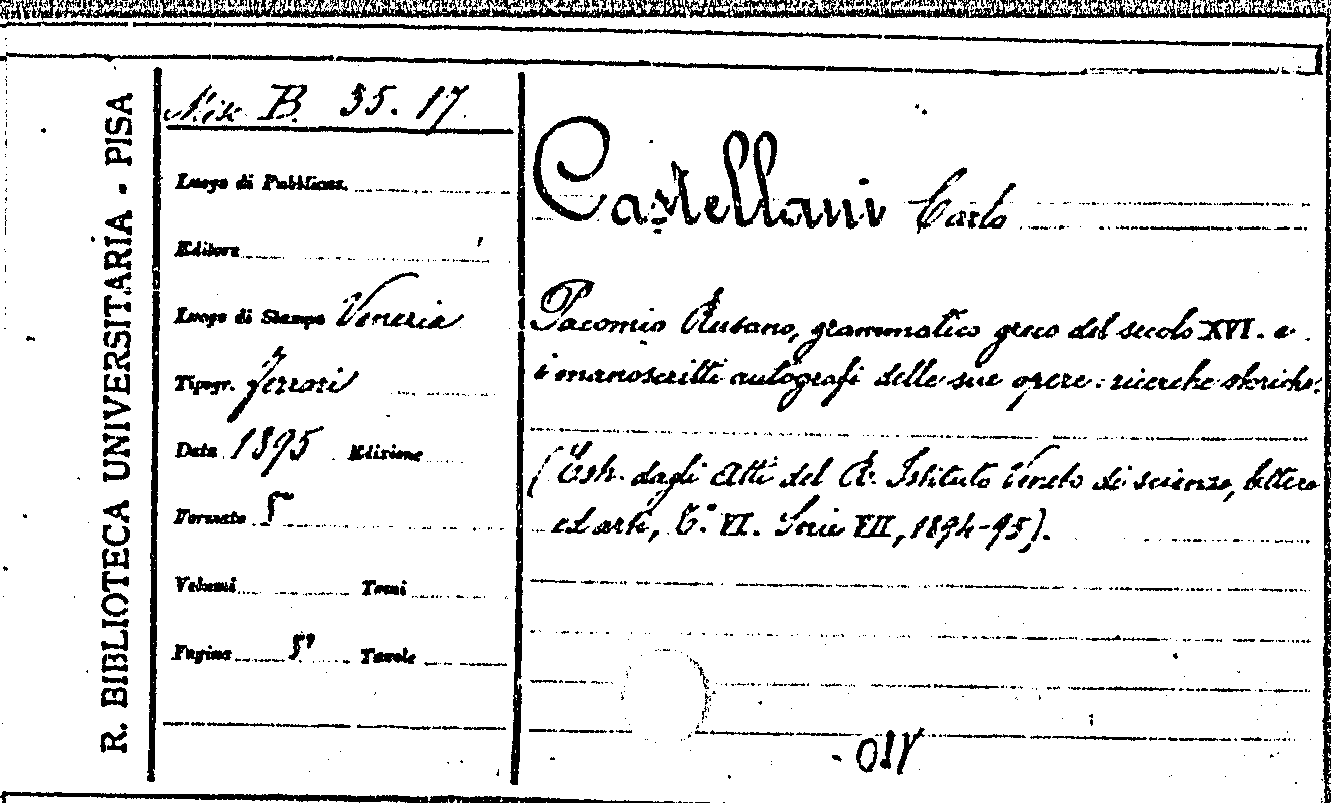 R. BIBLIOTECA UNIVERSITARIA - PISA
Misc. B. 35. 17.
Luogo di Pubblicaz.
Editore
Luogo di Stampa Venezia
Tipogr. Ferrari
Data 1895 Edizione
Formato 8
Volumi Tomi
Pagine Tavole
Castellani Carlo
Pacomio Rusano, grammatico greco del secolo XVI. e
i manoscritti autografi delle sue opere: ricerche storiche.
(Estr. dagli Atti del R. Istituto Veneto di scienze, lettere
ed arti, T.° VI. Serie VII, 1894-95).